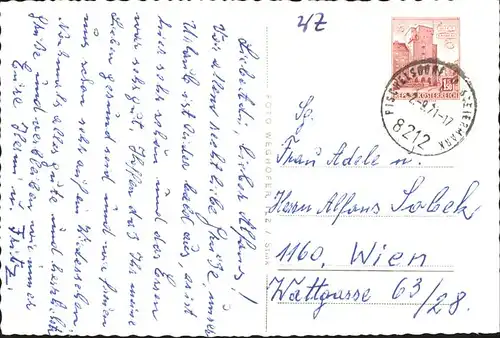 Liebe Adi, lieber Alfons!
Vor allem recht liebe Grüße, unser
Urlaub ist leider bald aus, es ist
hier sehr schön und das Essen
war sehr gut. Hoffen das Ihr meine
Lieben gesund seid und wir freuen
uns schon sehr auf ein Wiedersehen.
Nochmals alles gute und herzlichst
Grüße und verbleiben wie immer
Eure Hermi u. Fritz
4Z
FOTO WEGHOFER
REPUBLIK ÖSTERREICH
FISCHELSDORF STEIERMARK
-2.-9.71-17
8212
Sg.
Frau Adele u.
Herrn Alfons Sobek
1160, Wien
Wattgasse 63/28.